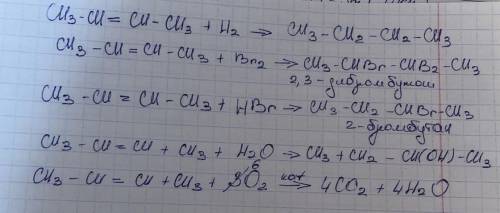 CH3-CH=CH-CH3 + H2 → CH3-CH2-CH2-CH3
CH3-CH=CH-CH3 + Br2 → CH3-CHBr-CHB2-CH3
2,3-дибромбутан
CH3-CH=CH-CH3 + HBr → CH3-CH2-CHBr-CH3
2-бромбутан
CH3-CH=CH+CH3 + H2O → CH3+CH2-CH(OH)-CH3
CH3-CH=CH+CH3 + 6O2 → 4CO2 + 4H2O